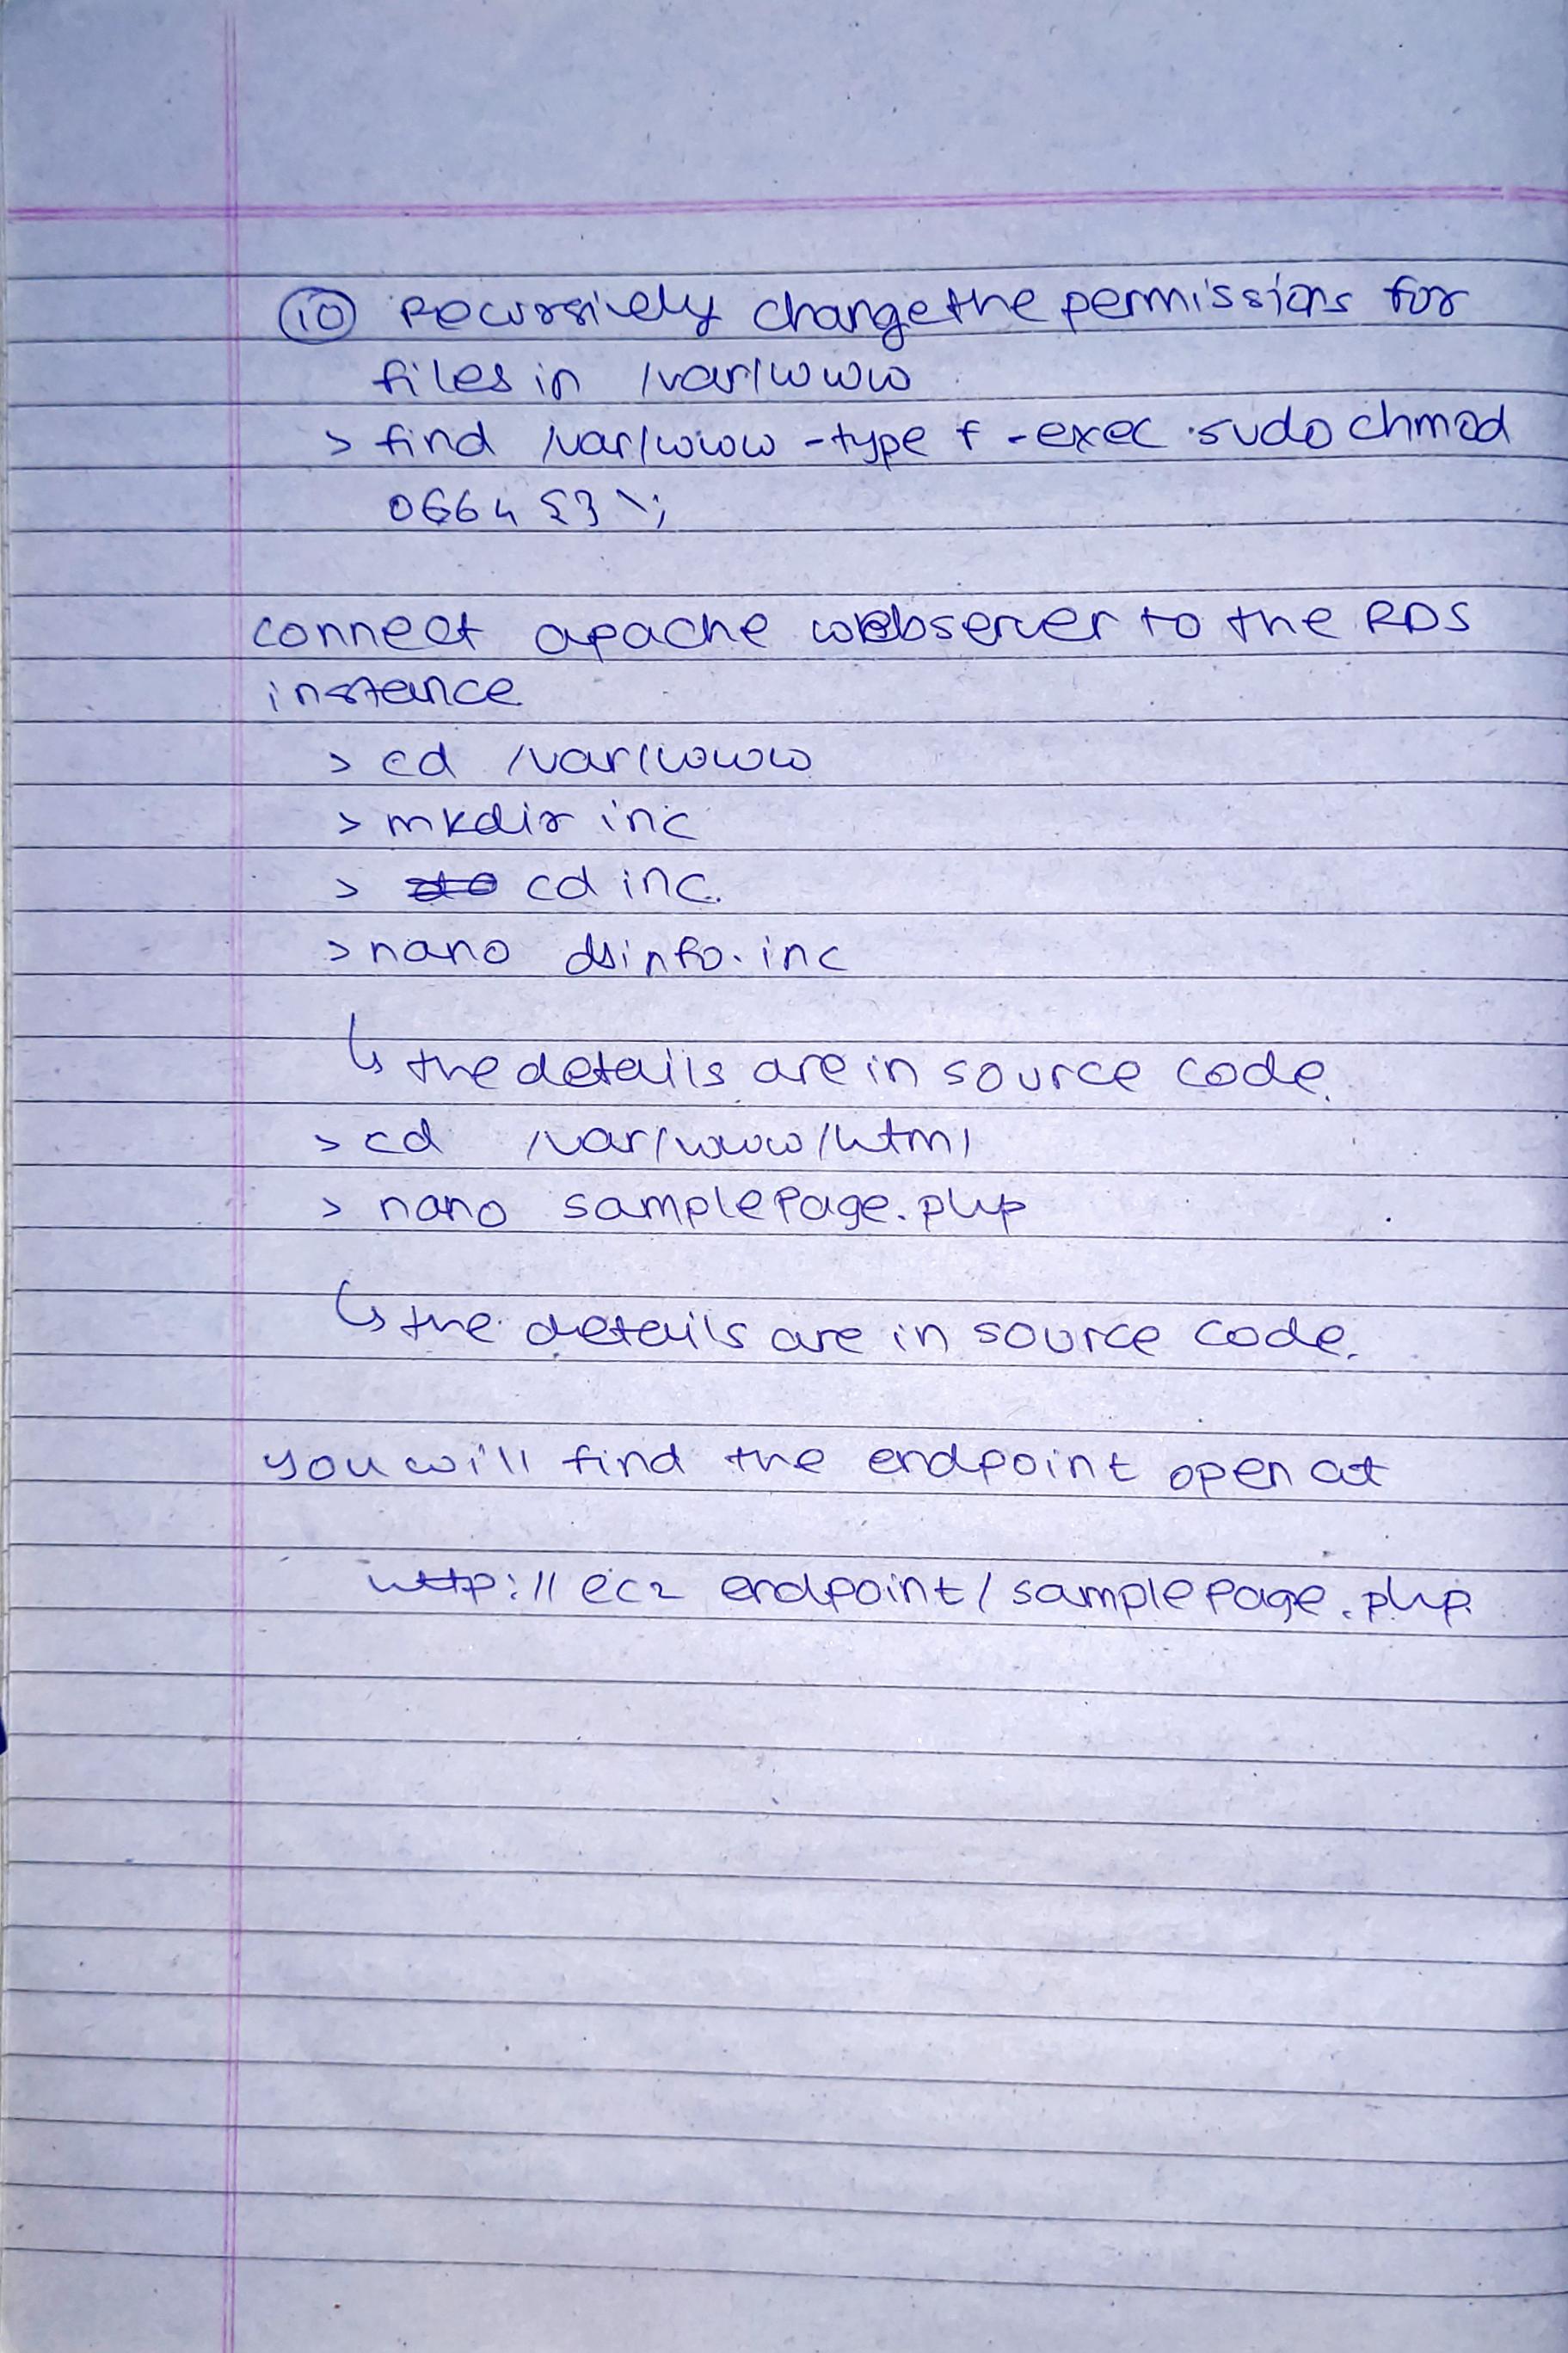 10 Recursively change the permissions for
files in /var/www
> find /var/www -type f -exec sudo chmod
0664 {} \;
connect apache webserver to the RDS
instance
> cd /var/www
> mkdir inc
> cd inc.
> nano dbinfo.inc
↳ the details are in source code.
> cd /var/www/html
> nano samplePage.php
↳ the details are in source code.
you will find the endpoint open at
http://ec2 endpoint/samplePage.php